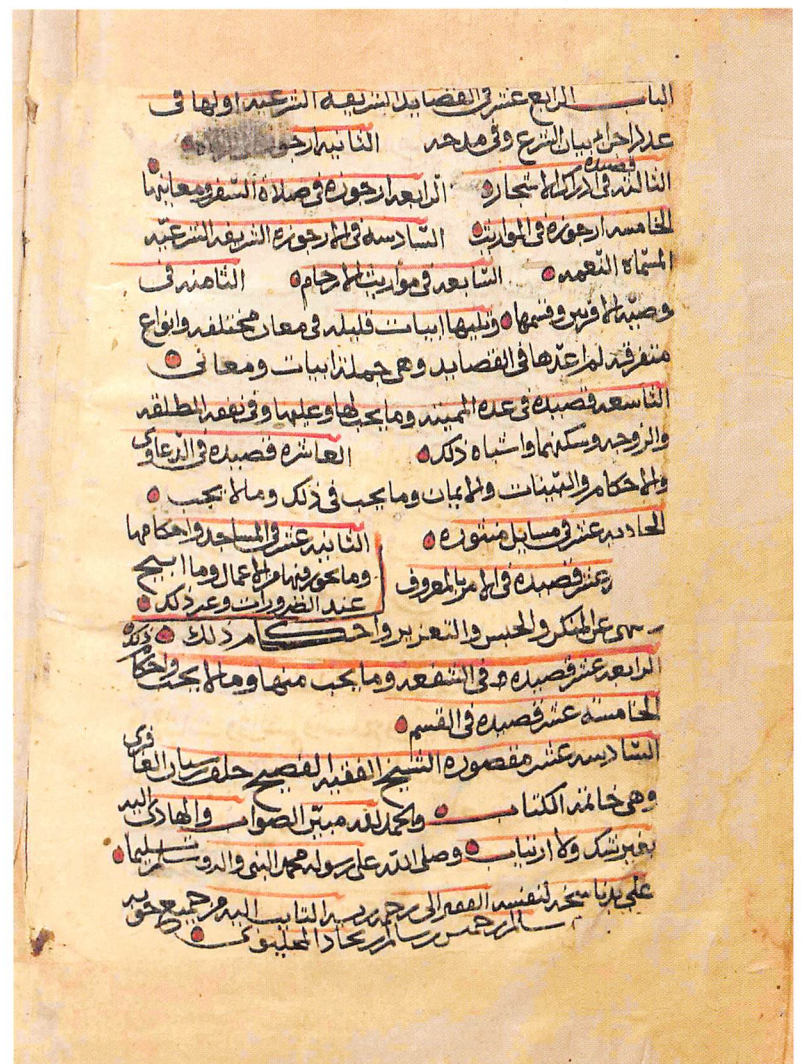 الباب الرابع عشر في القصايد الشريفه الشرعيه اولها في
عدد اجزاء بيان الشرع وفي مدحه الثانيه ارجوزه
قصيدة
الثالثه في ادراك الاشجار الرابعه ارجوزه في صلاة السفر ومعانيها
الخامسه ارجوزه في المواريث السّادسه في الارجوزه الشريفه الشرعيّه
المسمّاة النّعمه السّابعه في مواريث الارحام الثّامنه في
وصيّة الاقربين وقسمها وتليها ابيات قليله في معان مختلفه وانواع
متفرقه لم اعدّها في القصايد وهي جملة ابيات ومعاني
التاسعه قصيده في عدة المميته وما يجب لها وعليها وفي نفقه المطلقه
والزوجه وسكنهما واشباه ذلك العاشره قصيده في الدّعاوي
والاحكام والبيّنات والايمان وما يجب في ذلك وما لا يجب
الحاديه عشر في مسايل منثوره الثانيه عشر في المساجد واحكامها
وما يجوز فيها من الاعمال وما ابيح
عشر قصيده في الامر بالمعروف
عند الضرورات وغير ذلك
عن المنكر والحبس والتعزير واحكام ذلك
الرابعه عشر قصيده في الشفعه وما يجب منها وما لا يجب واحكام ذلك
الخامسه عشر قصيده في القسم
السّادسه عشر مقصورة الشيخ الفقيه الفصيح خلف بن سنان الغافري
وهي خاتمة الكتاب والحمد لله مبيّن الصواب والهادي اليه
بغير شك ولا ارتياب وصلى الله على رسوله محمد النبي واله وسلم تسليما
على يد ناسخه لنفسه الفقير الى رحمة ربه التايب اليه من جميع حوبه
سالم بن خميس بن سالم بن نجاد المحليوي